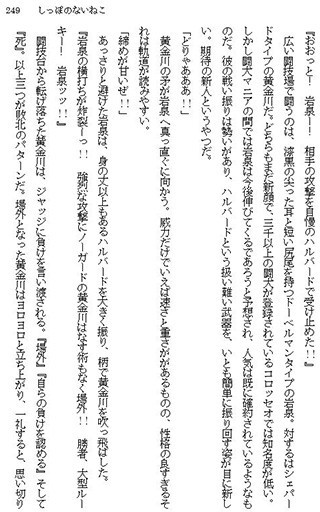 249　しっぽのないねこ
『おおっと！　岩泉ー！　相手の攻撃を自慢のハルバードで受け止めた!!』
広い闘技場で闘うのは、漆黒の尖った耳と短い尻尾を持つドーベルマンタイプの岩泉。対するはシェパー
ドタイプの黄金川だ。どちらもまだ新顔で、三千以上の闘犬が登録されているコロッセオでは知名度が低い。
しかし闘犬マニアの間では岩泉は今後伸びてくるであろうと予想され、人気は既に確約されているようなも
のだ。彼の戦い振りは勢いがあり、ハルバードという扱い難い武器を、いとも簡単に振り回す姿が目に新し
い。期待の新人というやつだ。
「どりゃああ!!」
黄金川の矛が岩泉へ真っ直ぐに向かう。威力だけでいえば速さと重さががあるものの、性格の良すぎるそ
れは軌道が読みやすい。
「締めが甘いぜ!!」
あっさりと避けた岩泉は、身の丈以上もあるハルバードを大きく振り、柄で黄金川を吹っ飛ばした。
『岩泉の横打ちが炸裂ーっ!!　強烈な攻撃にノーガードの黄金川はなす術もなく場外!!　勝者、大型ルー
キー！　岩泉ッッ!!』
闘技台から転げ落ちた黄金川は、ジャッジに負けを言い渡される。『場外』『自らの負けを認める』そして
『死』。以上三つが敗北のパターンだ。場外となった黄金川はヨロヨロと立ち上がり、一礼すると、思い切り